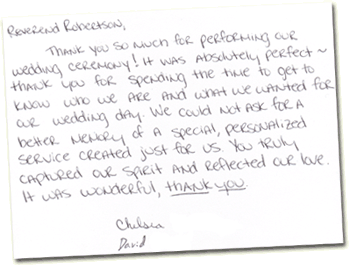 Reverend Robertson,
Thank you so much for performing our
wedding ceremony! It was absolutely perfect ~
thank you for spending the time to get to
know who we are and what we wanted for
our wedding day. We could not ask for a
better memory of a special, personalized
service created just for us. You truly
captured our spirit and reflected our love.
It was wonderful, thank you.
Chelsea
David